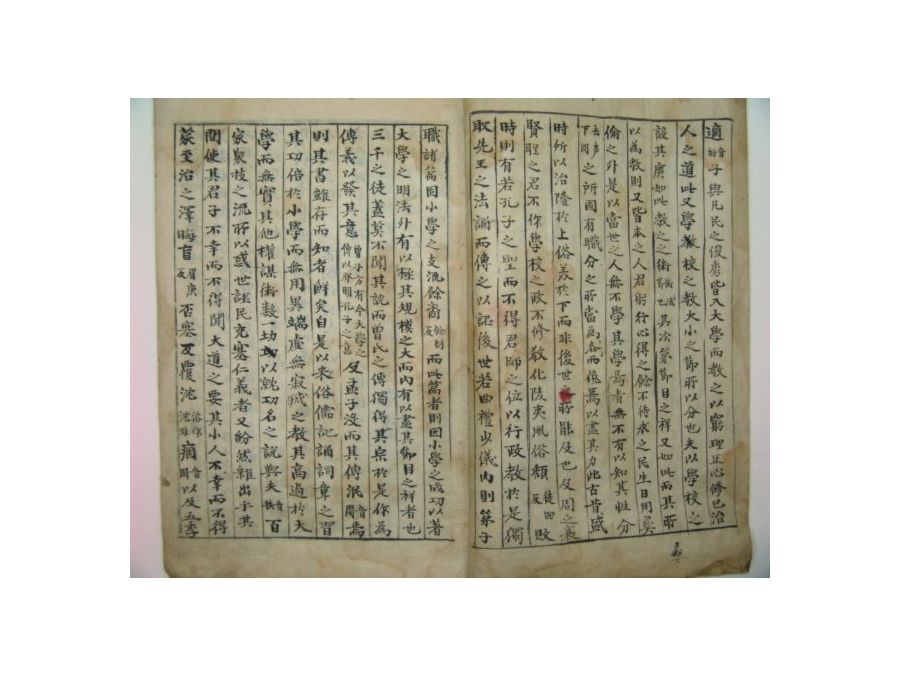 適音的子與凡民之俊秀皆入大學而教之以窮理正心修己治
人之道此又學校之教大小之節所以分也夫以學校之
設其廣如此教之之術其次第節目之祥又如此而其所
以為教則又皆本之人君躬行心得之餘不待求之民生日用彝
倫之外是以當世之人無不學其學焉者無不有以知其性分
之所固有職分之所當為各俛焉以盡其力此古昔盛
時所以治隆於上俗羙於下而非後世之所能及也及周之衰
賢聖之君不作學校之政不修教化陵夷風俗頹徒回反敗
時則有若孔子之聖而不得君師之位以行政教於是獨
取先王之法誦而傳之以詔後世若曲禮少儀內則第子
職諸篇固小學之支流餘裔而此篇者則因小學之成功以著
大學之明法外有以極其規模之大而內有以盡其節目之祥者也
三千之徒蓋莫不聞其說而曽氏之傳獨得其宗於是作為
傳義以發其意曽子方有今大學之傳以發明孔子之意及孟子沒而其傳泯焉
則其書雖存而知者鮮矣自是以來俗儒記誦詞章之習
其功倍於小學而無用異端虛無寂滅之教其高過於大
學而無實其他權謀術數一切以就功名之說與夫百
家衆技之流所以惑世誣民充塞仁義者又紛然雜出乎其
間使其君子不幸而不得聞大道之要其小人不幸而不得
蒙至治之澤晦盲眉庚反否塞反覆沈痼音固以及五季